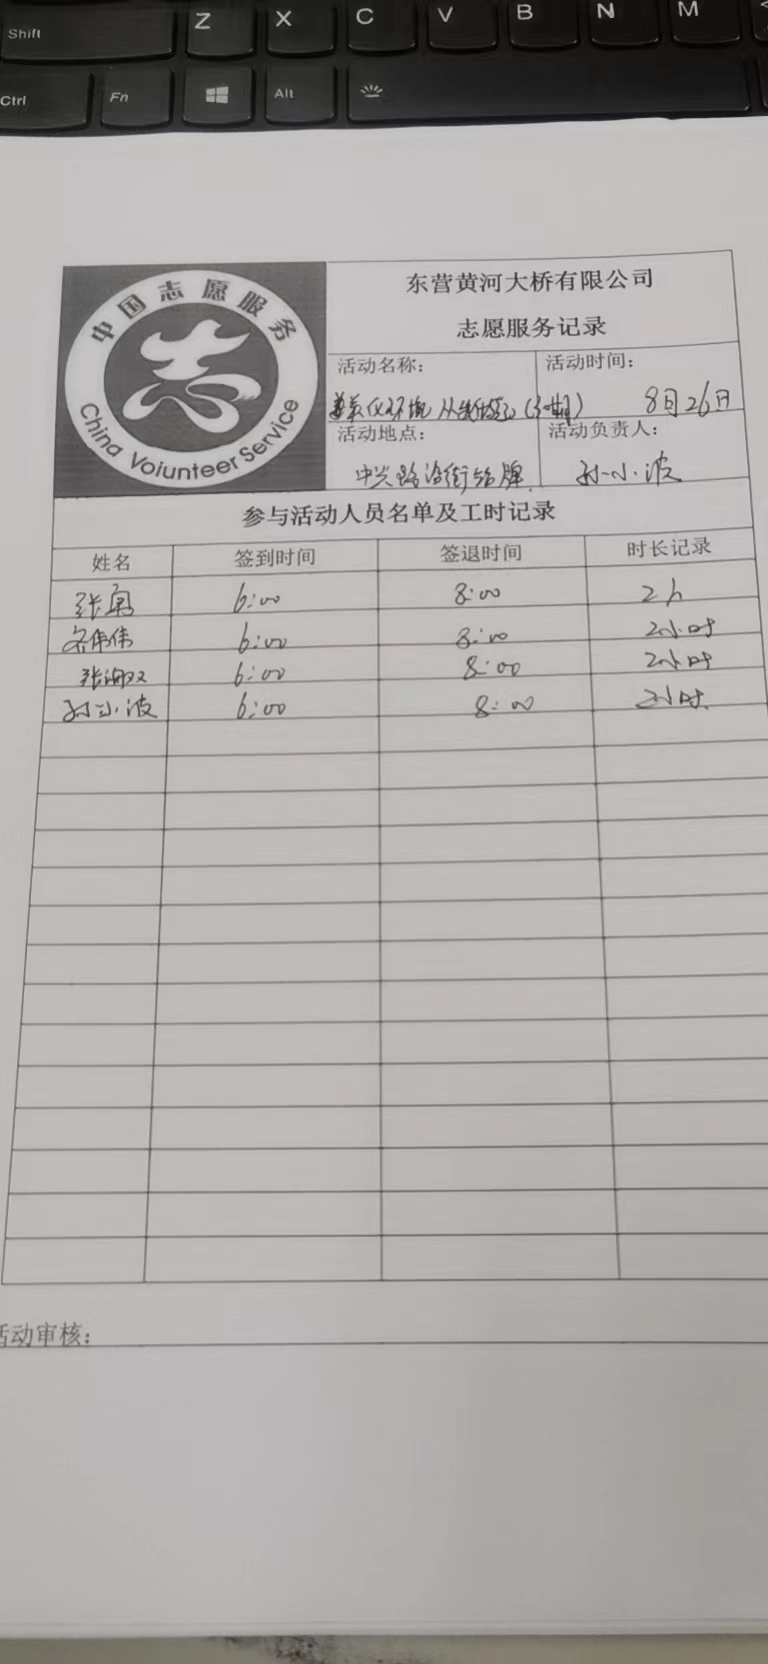 Shift Z X C V B N M
Ctrl Fn Alt
中国志愿服务
China Voiunteer Service
东营黄河大桥有限公司
志愿服务记录
活动名称:
活动时间:
8月26日
活动地点:
活动负责人:
中兴路沿街
孙小波
参与活动人员名单及工时记录
姓名 签到时间 签退时间 时长记录
张勇 6:00 8:00 2h
伟伟 6:00 8:00 2小时
张 6:00 8:00 2小时
孙小波 6:00 8:00 2小时
活动审核: